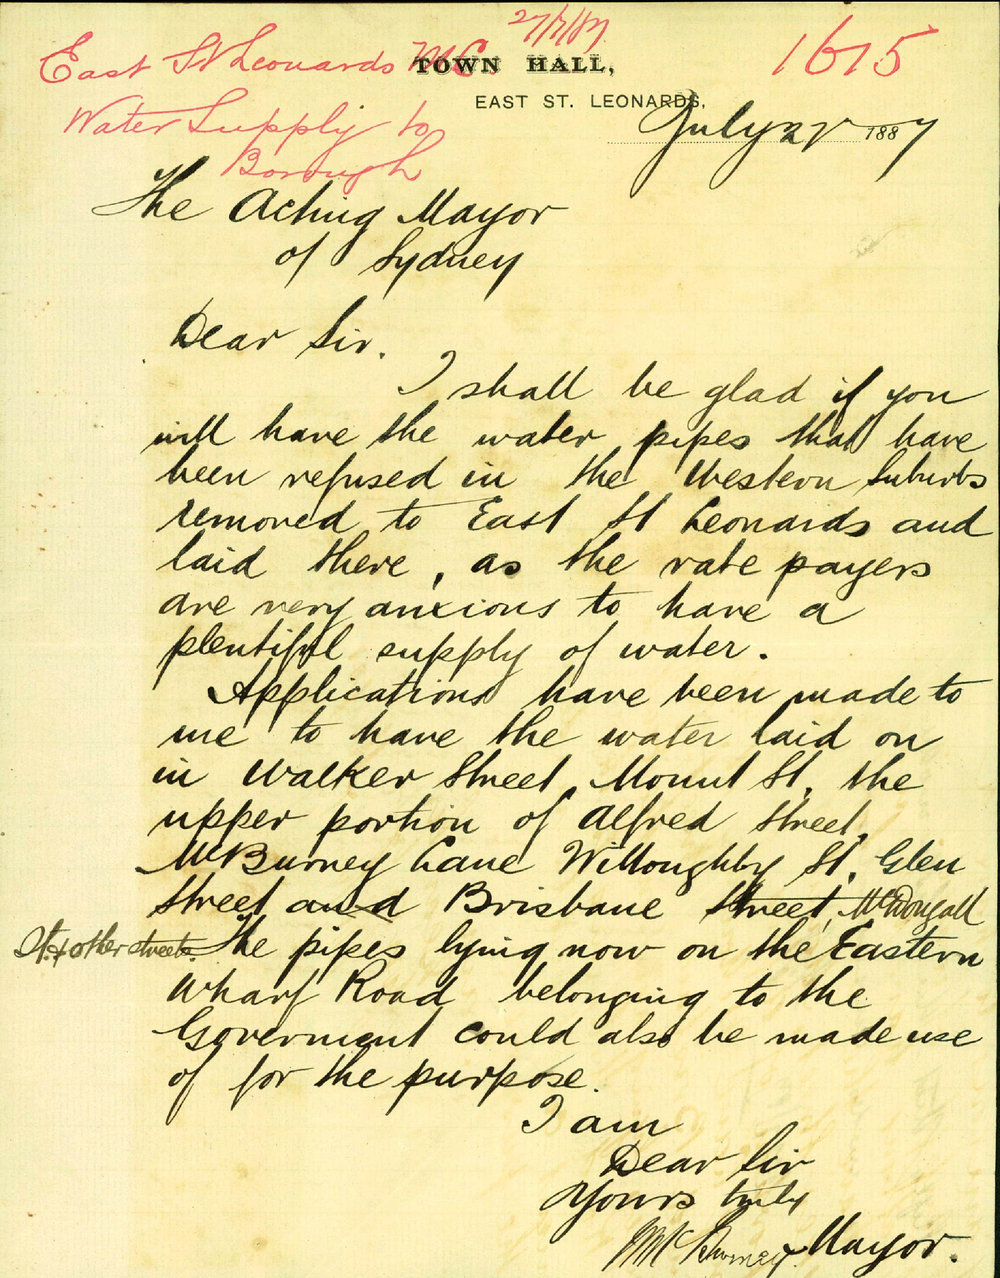 27/7/87
East St Leonards M.C. 1615
TOWN HALL,
EAST ST. LEONARDS,
Water Supply to
Borough
July 27 1887
The Acting Mayor
of Sydney
Dear Sir.
I shall be glad if you
will have the water pipes that have
been refused in the Western Suburbs
removed to East St Leonards and
laid there, as the rate payers
are very anxious to have a
plentiful supply of water.
Applications have been made to
me to have the water laid on
in Walker Street, Mount St, the
upper portion of Alfred Street,
McBurney Lane Willoughby St, Glen
Street and Brisbane Street, McDougall
St. & other streets. The pipes lying now on the Eastern
Wharf Road belonging to the
Goverment could also be made use
of for the purpose.
I am
Dear Sir
Yours truly
McBurney Mayor.